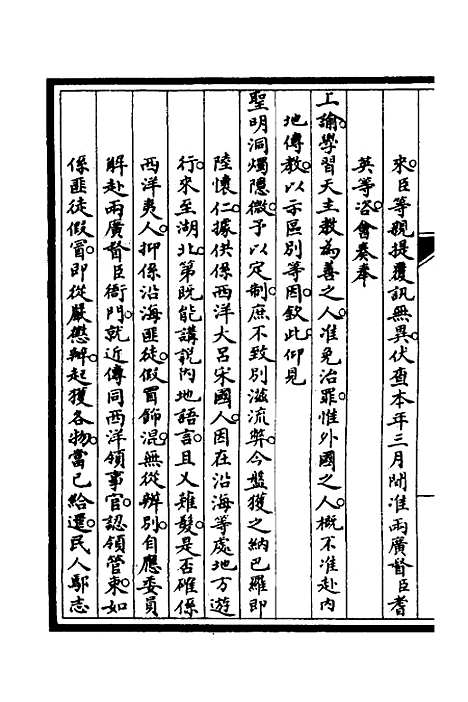 來臣等親提覆訊無異伏查本年三月間准兩廣督臣耆
英等洛會奏奉
上諭學習天主教為善之人准免治罪惟外國之人概不准赴內
地傳教以示區別等因欽此仰見
聖明洞燭隱微予以定制庶不致別滋流弊今盤獲之納巴羅即
陸懷仁據供係西洋大呂宋國人因在沿海等處地方遊
行來至湖北第既能講說內地語言且又雉髮是否確係
西洋夷人抑係沿海匪徒假冒飾混無從辨別自應委員
解赴兩廣督臣衙門就近傳同西洋領事官認領管束如
係匪徒假冒即從嚴懲辦起獲各物當已給還民人鄢志